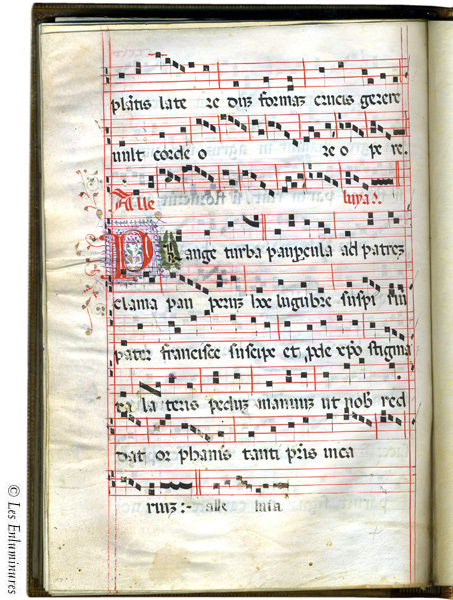 plantis late re diuz formaz crucis gerere
uult corde o re o pe re.
Alle luya:.
Plange turba paupercula ad patrez
clama pau peruz hoc lugubre suspi riu
pater francisce suscipe et pde xpo stigma
ta la teris peduz manuuz ut nob red
dat or phanis tanti pris uica
riuz :- alle luia
© Les Enluminures